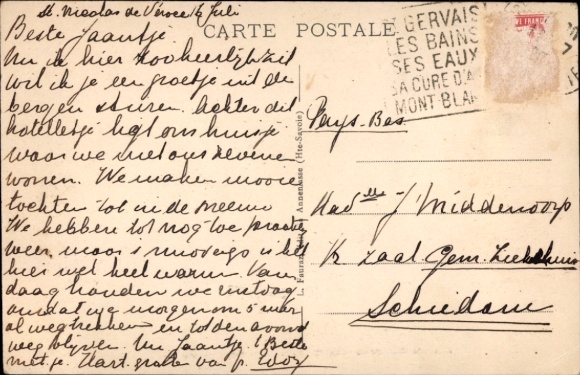 St. Nicolas de Véroce Juli
Beste Jaantje.
Nu ik hier zoo heerlijk zit
wil ik je een groetje uit de
bergen sturen. Achter dit
hotelletje ligt ons huisje
waar we met ons zevenen
wonen. We maken mooie
tochten tot in de sneeuw
We hebben tot nog toe prachtig
weer, maar 's is het
hier wel heel warm. Van
daag houden we rustdag
omdat we morgen om 5 uur
al wegtrekken en tot den avond
wegblijven. Nu Jaantje 't Beste
met je. Hart. groeten van
CARTE POSTALE
GERVAIS
LES BAINS
SES EAUX
SA CURE D'A
MONT-BLAN
Annemasse (Hte-Savoie)
Pays-Bas
Mad elle J Middendorp
K zaal Gem. Ziekenhuis
Schiedam